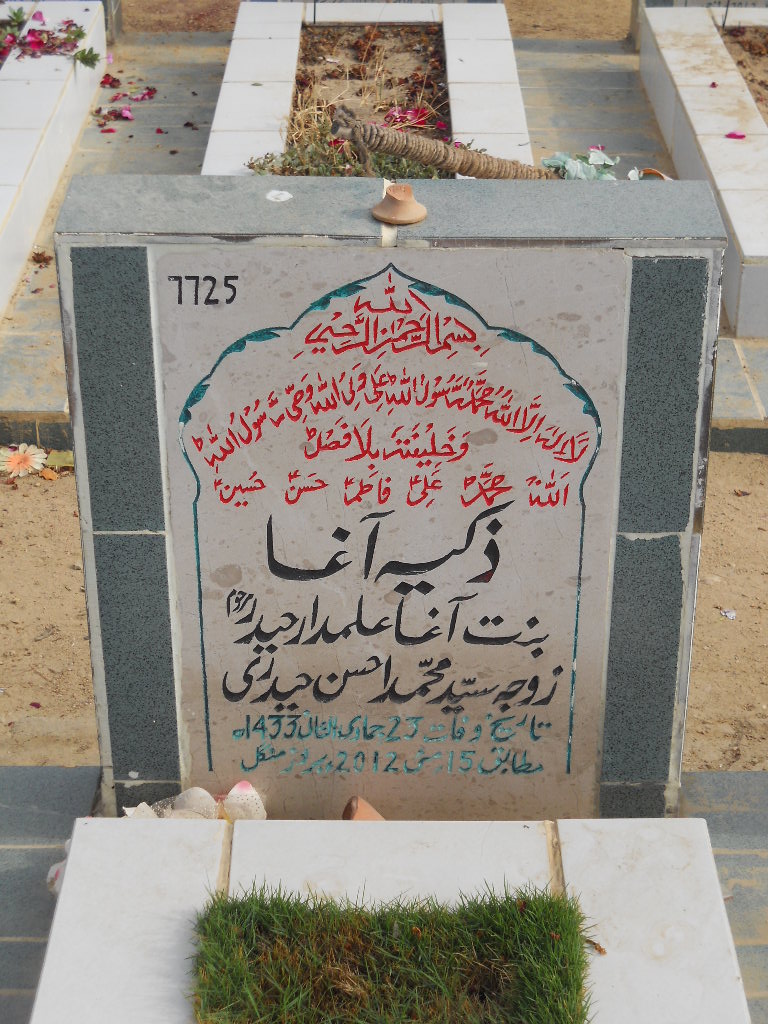 7725
بسم اللہ الرحمن الرحیم
لا الہ الا اللہ محمد رسول اللہ علی ولی اللہ وصی رسول اللہ
و خلیفتہ بلا فصل
اللہ محمد علی فاطمہ حسن حسین
ذکیہ آغا
بنت آغا علمدار حیدر مرحوم
زوجہ سید محمد احسن حیدری
تاریخ وفات 23 جمادی الثانی 1433ھ
مطابق 15 مئی 2012ء بروز منگل